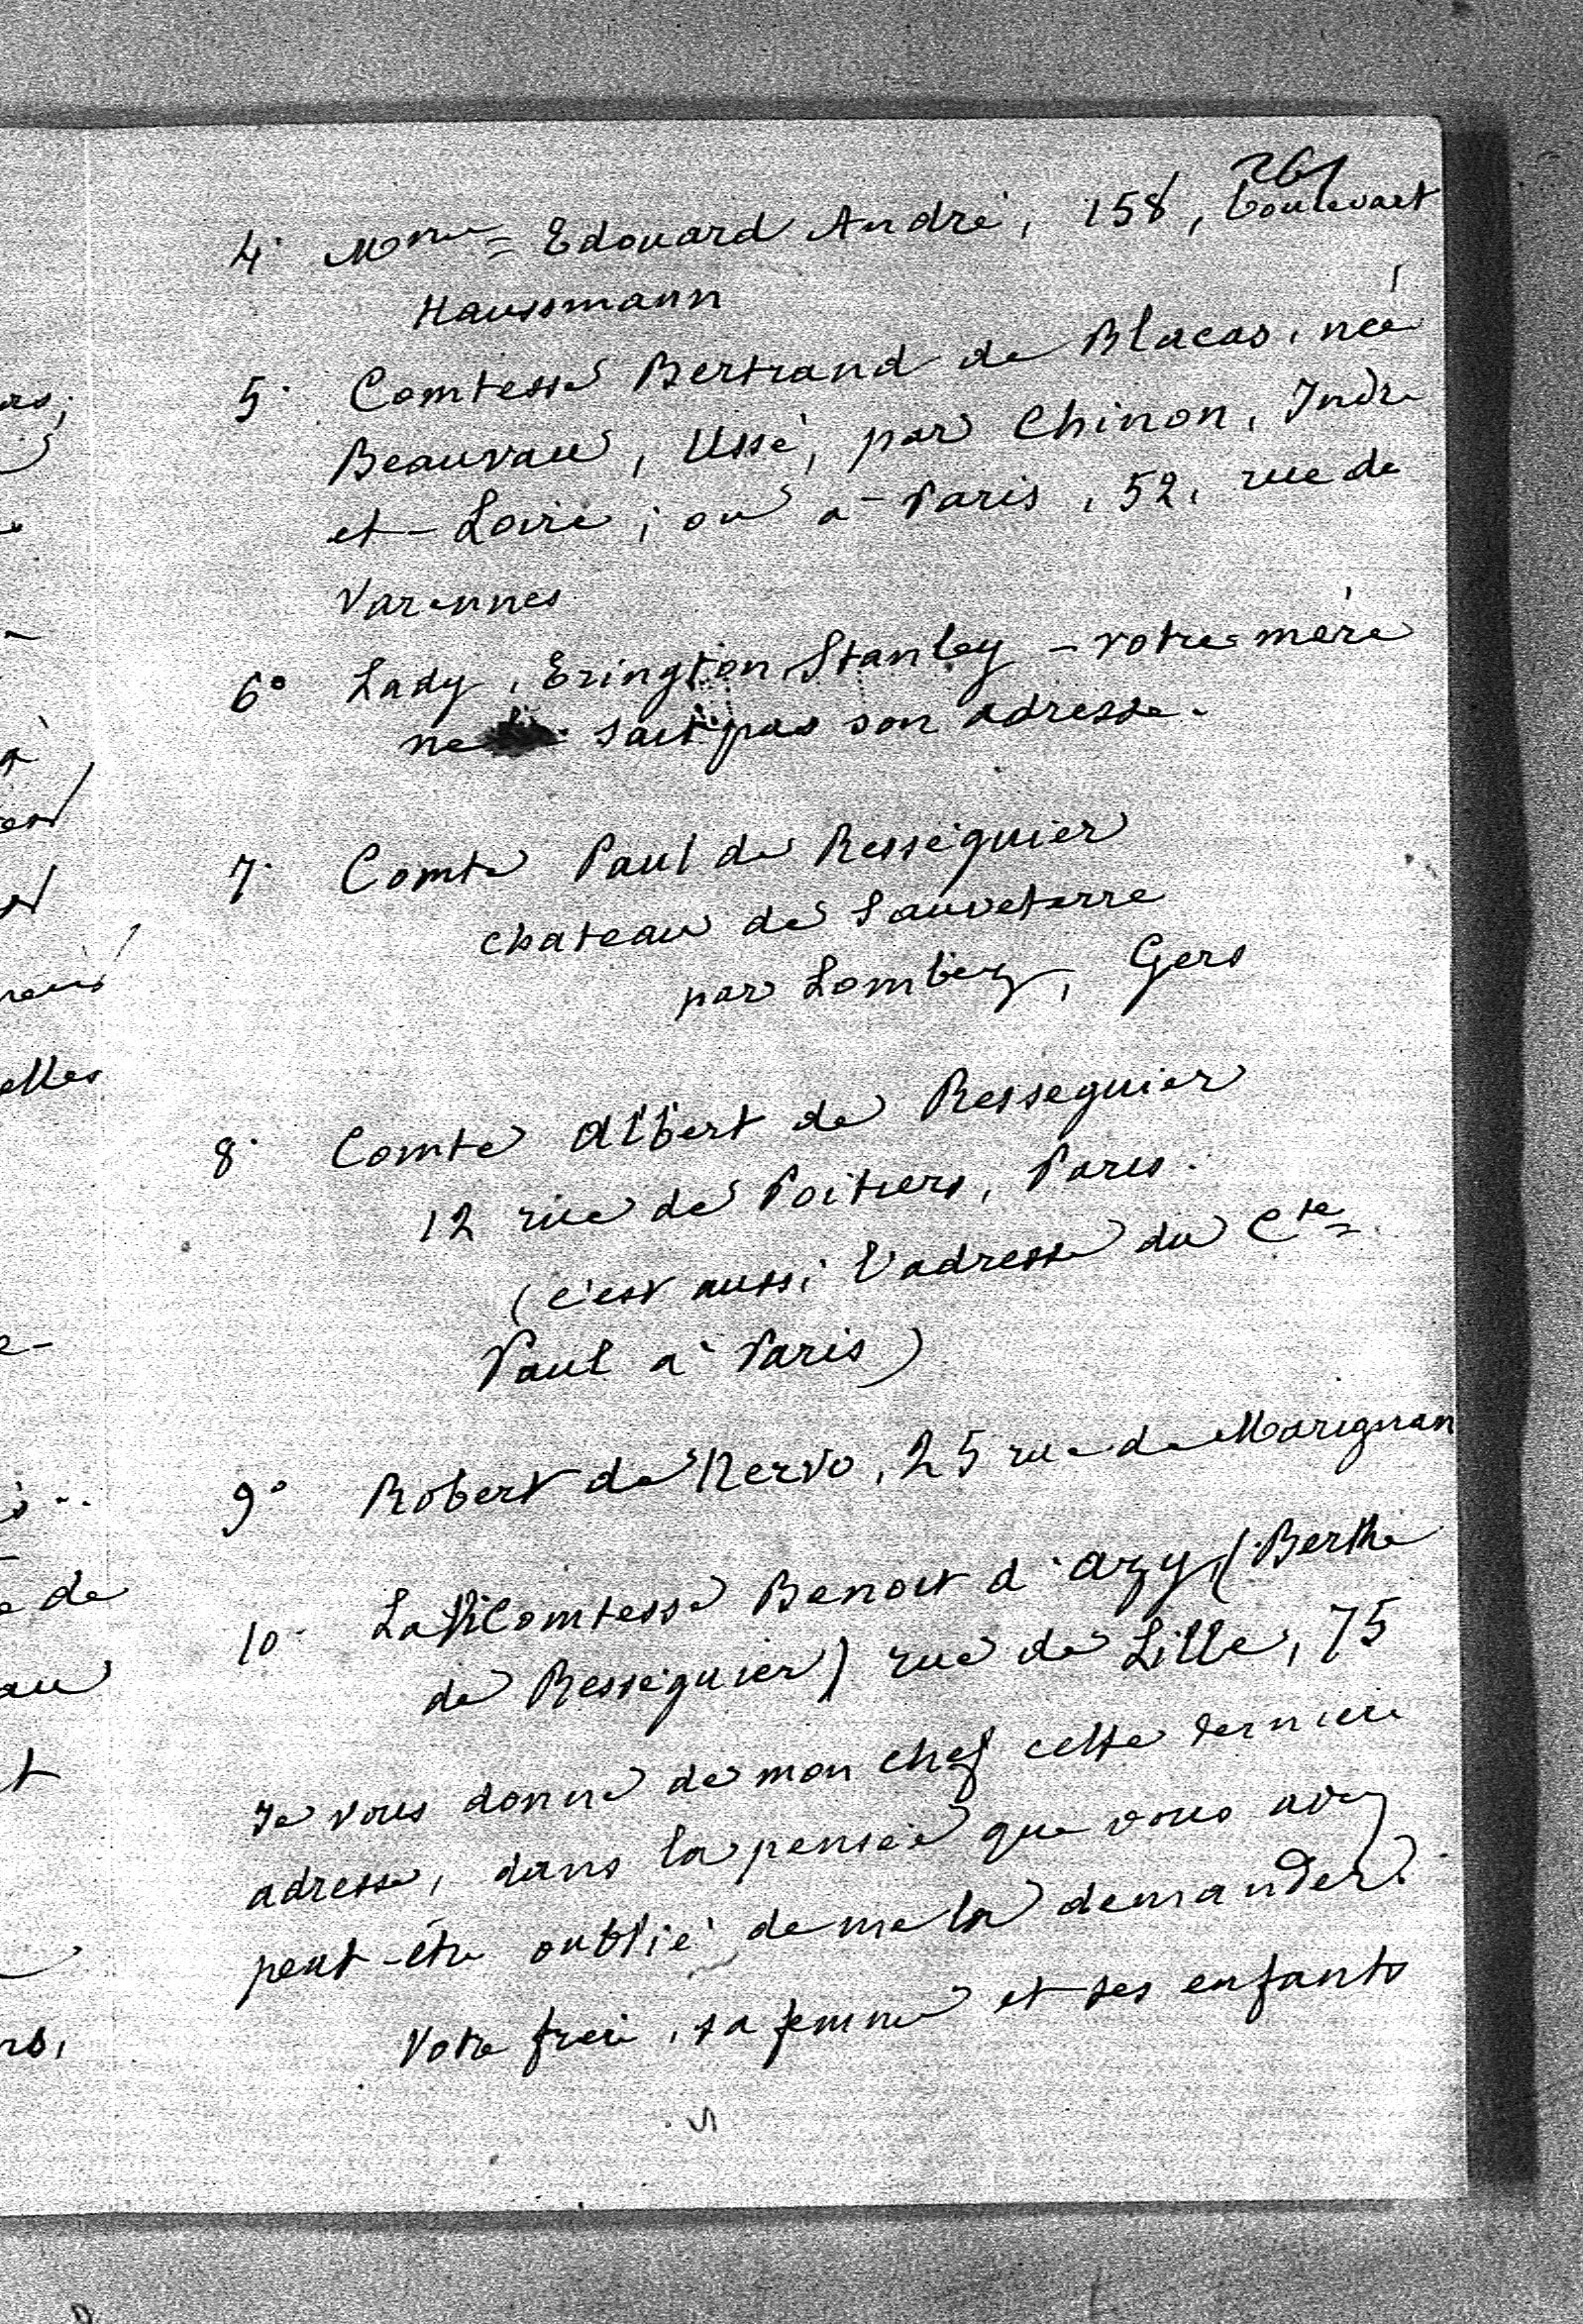 261
4° Mme Edouard André, 158, boulevart
Haussmann
5° Comtesse Bertrand de Blacas, née
Beauvau, Ussé, par Chinon, Indre
et-Loire; ou à Paris, 52, rue de
Varennes
6° Lady Erington Stanley - votre mère
ne sait pas son adresse.
7° Comte Paul de Rességuier
chateau de Sauveterre
par Lombez, Gers
8° Comte Albert de Resseguier
12 rue de Poitiers, Paris.
(c'est aussi l'adresse du Cte
Paul à Paris)
9° Robert de Nervo, 25 rue de Marignan
10° La Vicomtesse Benoit d'Azy (Berthe
de Rességuier) rue de Lille, 75
Je vous donne de mon chef cette dernière
adresse, dans la pensée que vous avez
peut-être oublié de me la demander.
Votre frère, sa femme et ses enfants